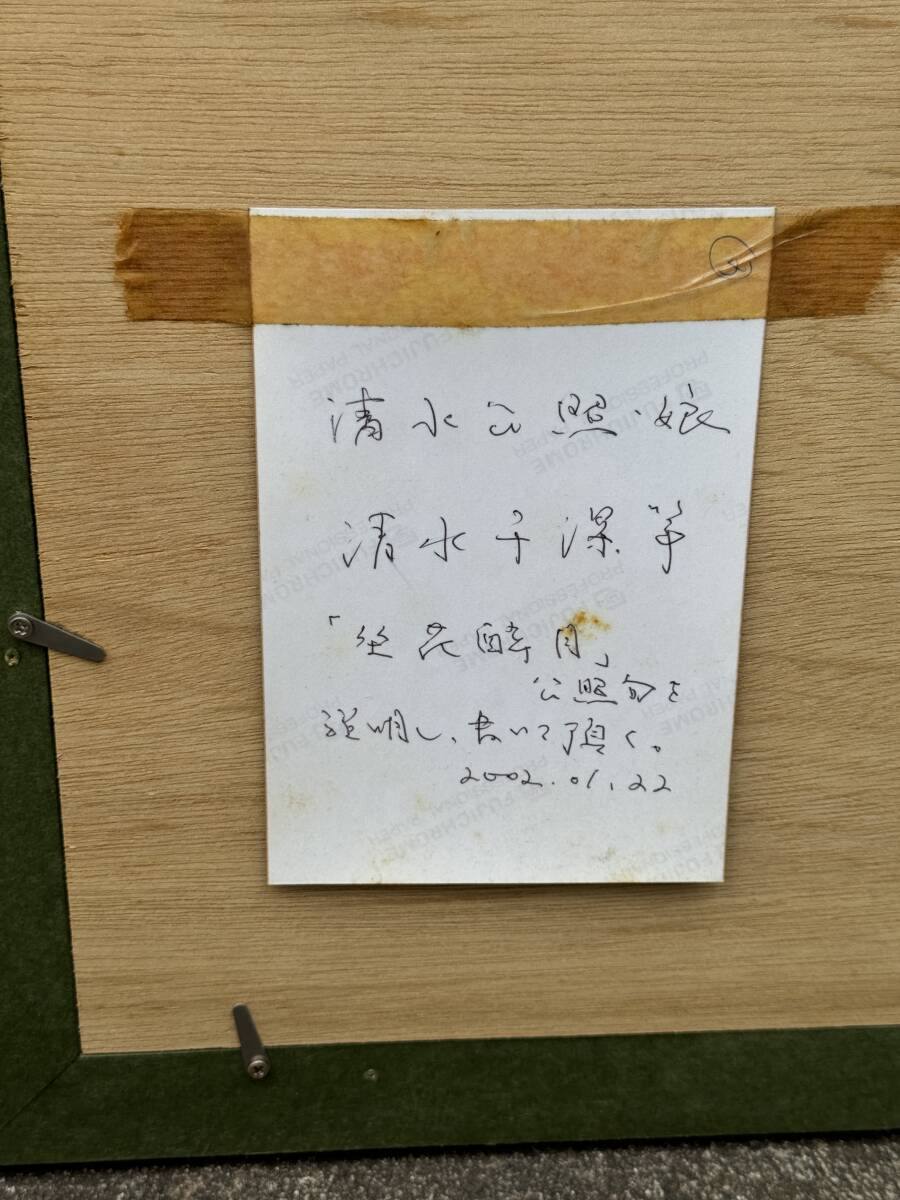 清水公照・娘
清水 筆
「坐花醉月」
公照句を
説明し、書いて頂く。
2002.01.22
FUJICHROME
PROFESSIONAL PAPER